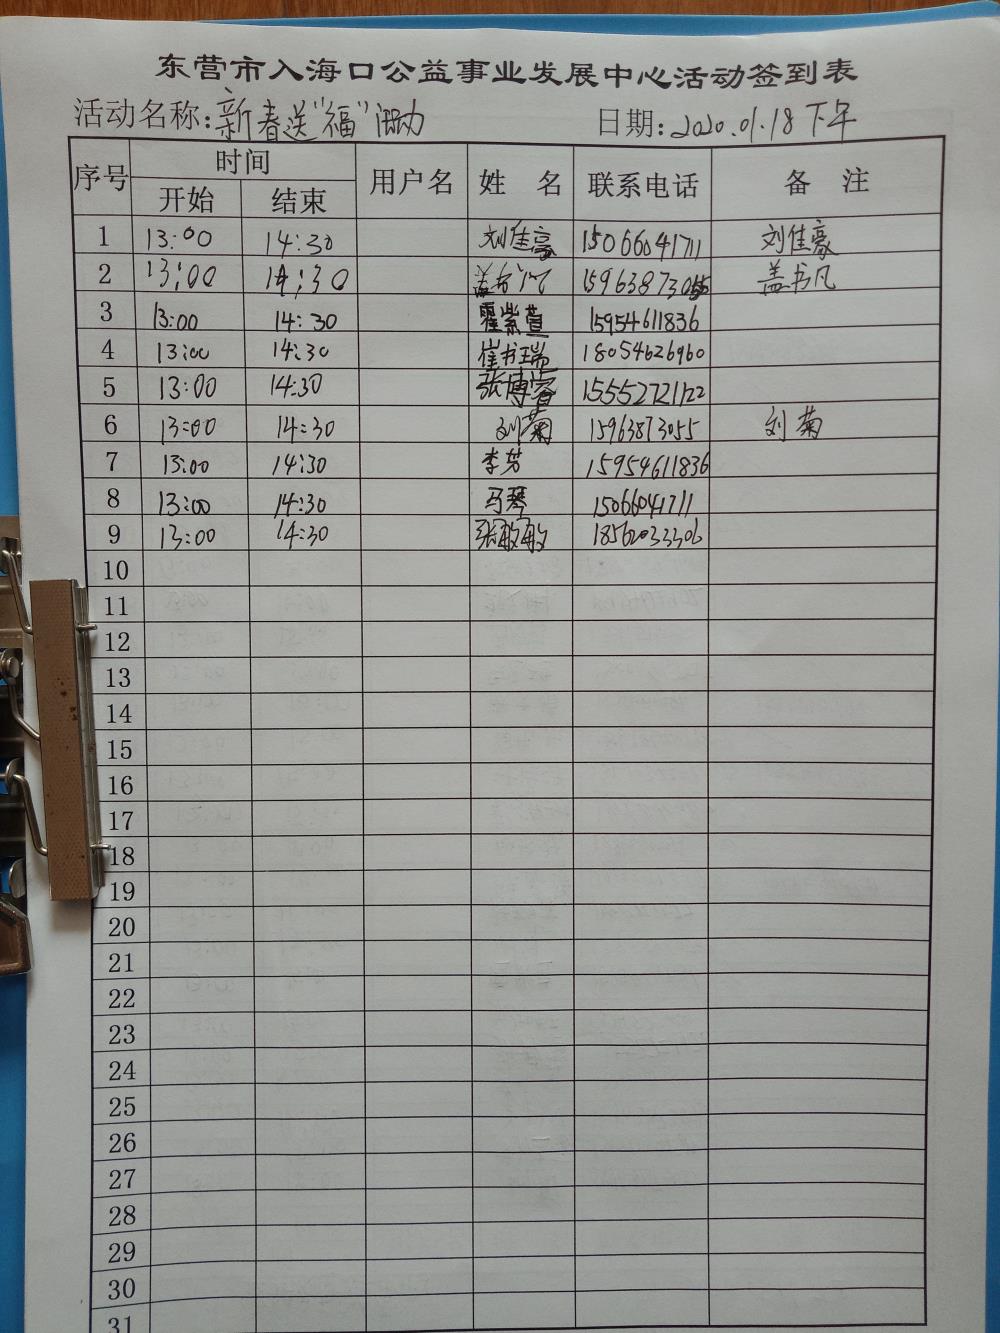 东营市入海口公益事业发展中心活动签到表
活动名称:新春送"福"活动 日期:2020.01.18下午
序号 时间 用户名 姓 名 联系电话 备 注
开始 结束
1 13:00 14:30 刘佳豪 15066041711 刘佳豪
2 13:00 14:30 盖书凡 15963873055 盖书凡
3 13:00 14:30 霍紫萱 15954611836
4 13:00 14:30 崔书瑞 18054626960
5 13:00 14:30 张博睿 15552721122
6 13:00 14:30 刘菊 15963873055 刘菊
7 13:00 14:30 李芳 15954611836
8 13:00 14:30 马琴 15066041711
9 13:00 14:30 张敏敏 18562033306
10
11
12
13
14
15
16
17
18
19
20
21
22
23
24
25
26
27
28
29
30
31